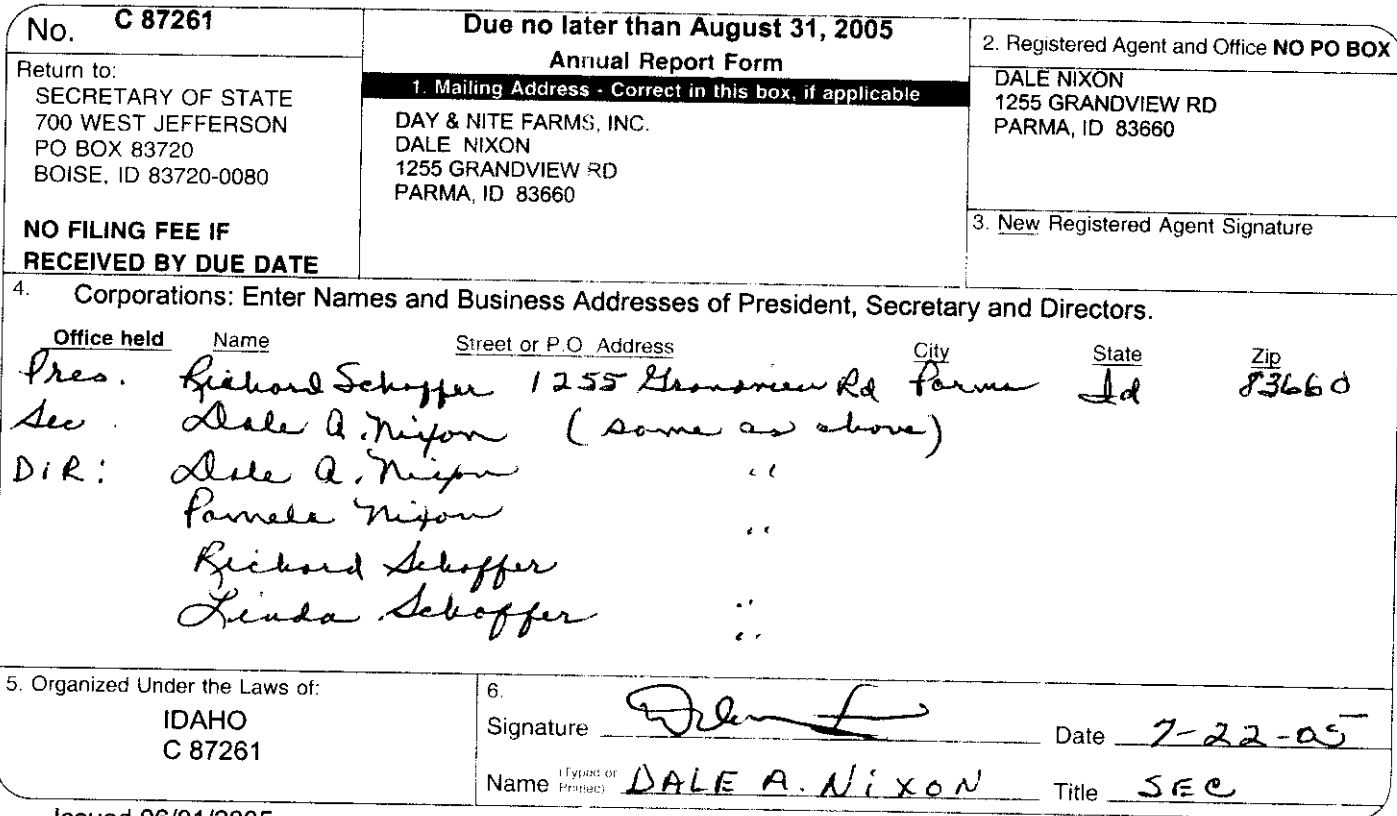 No. C 87261
Return to:
SECRETARY OF STATE
700 WEST JEFFERSON
PO BOX 83720
BOISE, ID 83720-0080
NO FILING FEE IF
RECEIVED BY DUE DATE
Due no later than August 31, 2005
Annual Report Form
1. Mailing Address - Correct in this box, if applicable
DAY & NITE FARMS, INC.
DALE NIXON
1255 GRANDVIEW RD
PARMA, ID 83660
2. Registered Agent and Office NO PO BOX
DALE NIXON
1255 GRANDVIEW RD
PARMA, ID 83660
3. New Registered Agent Signature
4. Corporations: Enter Names and Business Addresses of President, Secretary and Directors.
Office held Name Street or P.O. Address City State Zip
Pres. Richard Schoffer 1255 Grandview Rd Parma Id 83660
Sec. Dale A. Nixon (same as above)
DiR: Dale A. Nixon "
Pamela Nixon "
Richard Schoffer "
Linda Schoffer "
5. Organized Under the Laws of:
IDAHO
C 87261
6.
Signature Date 7-22-05
Name (Typed or Printed) DALE A. NiXON Title SEC
Issued 06/01/2005